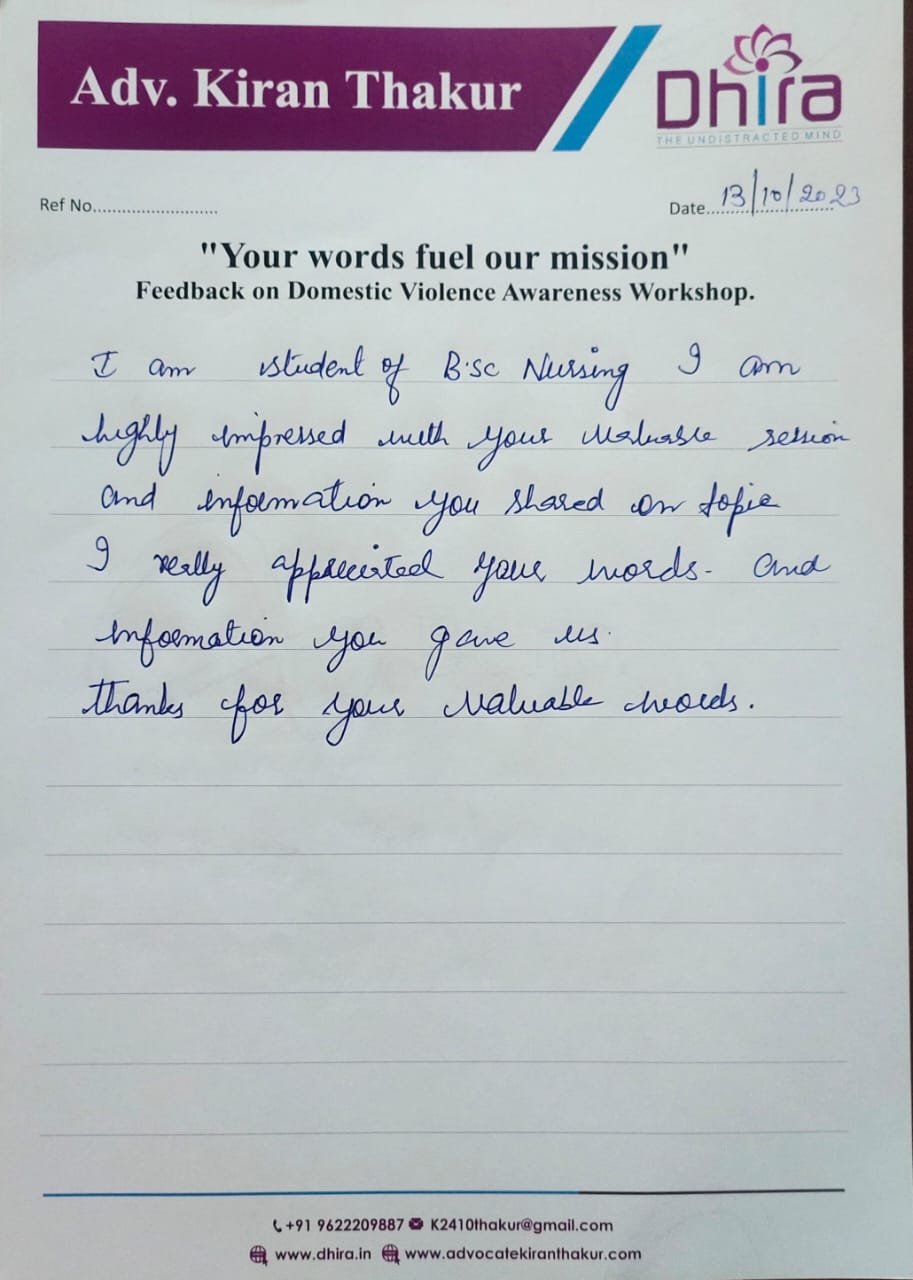 Adv. Kiran Thakur
Dhira
THE UNDISTRACTED MIND
Ref No..........................
Date..13/10/2023
"Your words fuel our mission"
Feedback on Domestic Violence Awareness Workshop.
I am student of B.Sc Nursing I am
highly impressed with your valuable session
and information you shared on topic
I really appreciated your words. and
information you gave us.
thanks for your valuable words.
+91 9622209887 K2410thakur@gmail.com
www.dhira.in www.advocatekiranthakur.com